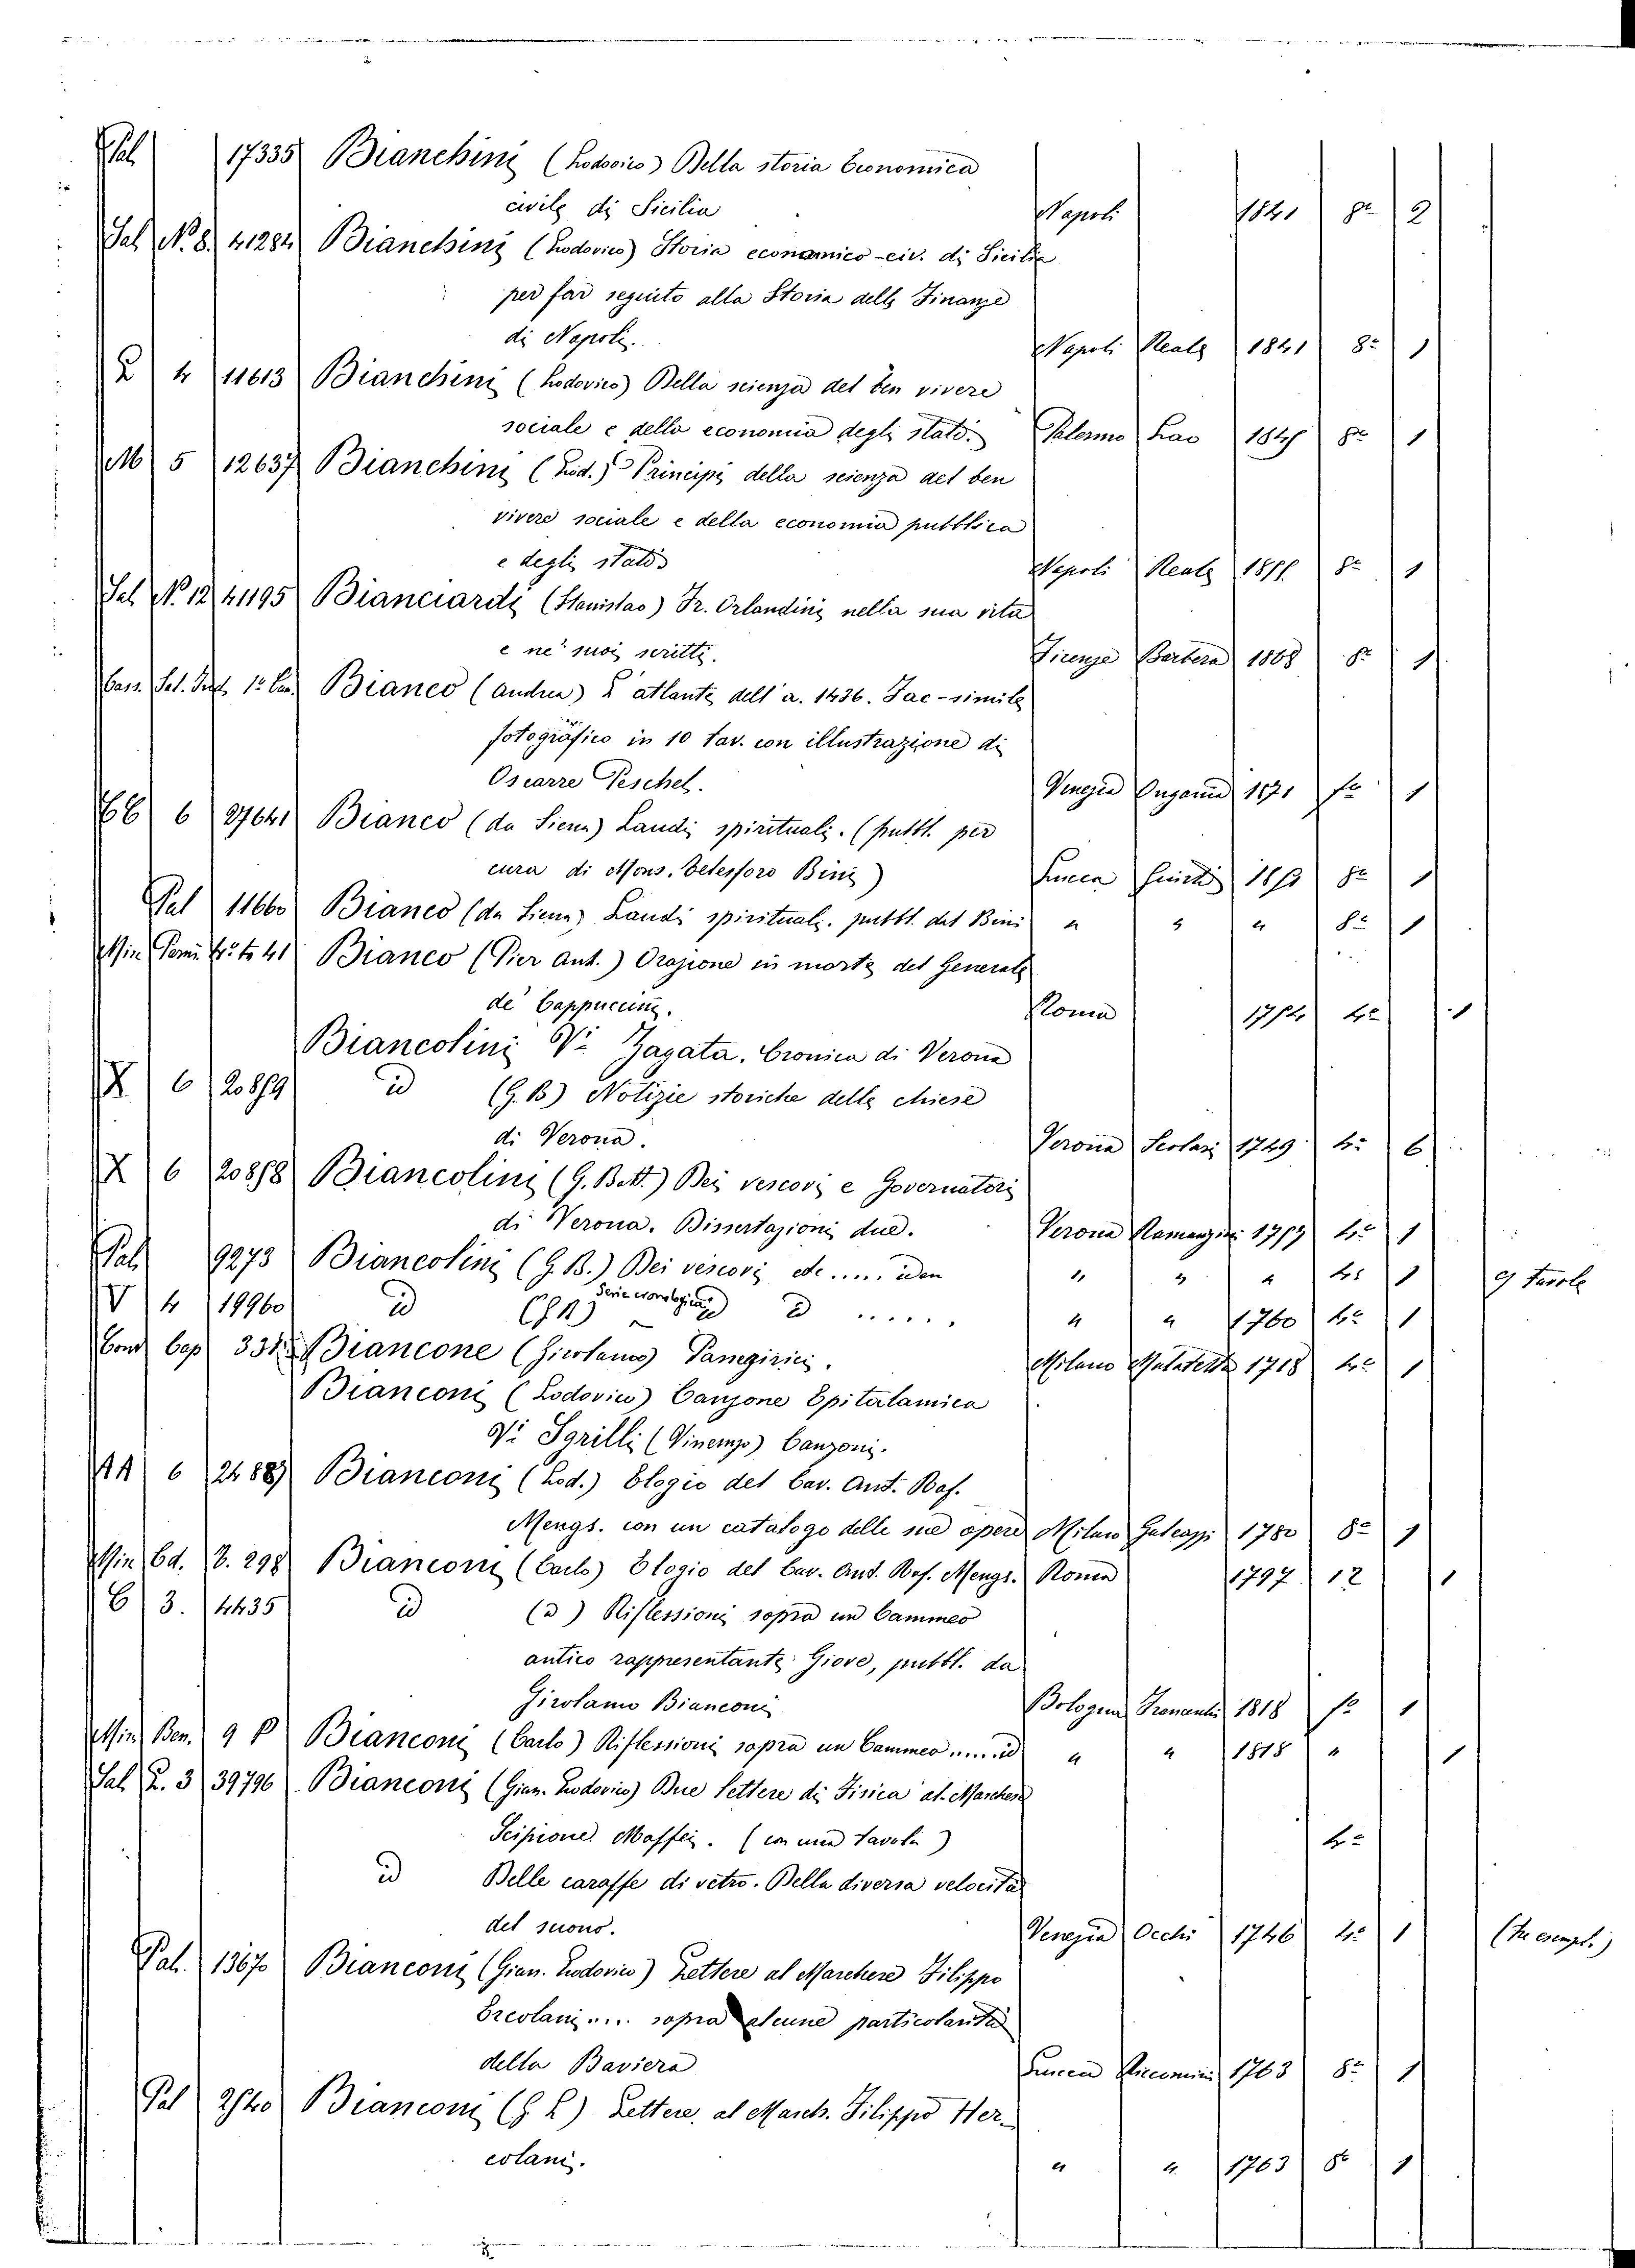 Pal 17335 Bianchini (Lodovico) Della storia Economica
civile di Sicilia Napoli 1841 8º 2
Sal N. 8. 41284 Bianchini (Lodovico) Storia economico-civ. di Sicilia
per far seguito alla Storia delle Finanze
di Napoli. Napoli Reale 1841 8º 1
L 4 11613 Bianchini (Lodovico) Della scienza del ben vivere
sociale e della economia degli stati. Palermo Lao 8º 1
M 5 12637 Bianchini (Lod.) Principi della scienza del ben
vivere sociale e della economia pubblica
e degli stati Napoli Reale 8º 1
Sal N. 12 41195 Bianciardi (Stanislao) Fr. Orlandini nella sua vita
e ne' suoi scritti. Firenze Barbera 1868 8º 1
Cass. Sal. 1º Bianco (Andrea) L'atlante dell'a. 1436. Fac-simile
fotografico in 10 tav. con illustrazione di
Oscarre Peschel. Venezia Ongania 1871 fº 1
6 27641 Bianco (da Siena) Laudi spirituali. (pubbl. per
cura di Mons. Telesforo Bini) Lucca Giusti 8º 1
Pal 11660 Bianco (da Siena) Laudi spirituali. pubbl. dal Bini " " " 8º 1
Min 41 Bianco (Pier Ant.) Orazione in morte del Generale
de' Cappuccini. Roma 4º 1
Biancolini Vi Zagata. Cronica di Verona
X 6 20859 id (G.B) Notizie storiche delle chiese
di Verona. Verona Scolari 1749 4º 6
X 6 20858 Biancolini (G. Batt.) Dei vescovi e Governatori
di Verona. Dissertazioni due. Verona Ramanzini 1757 4º 1
Pal 9273 Biancolini (G.B.) Dei vescovi etc..... idem " " " 4º 1 9 tavole
V 4 19960 id Serie cronologica id ...... " " 1760 4º 1
Cond Cap 334 Biancone (Girolamo) Panegirici. Milano Malatesta 1718 4º 1
Bianconi (Lodovico) Canzone Epitalamica
Vi Sgrilli (Vincenzo) Canzoni.
AA 6 Bianconi (Lod.) Elogio del Cav. Ant. Raf.
Mengs. con un catalogo delle sue opere Milano Galeazzi 1780 8º 1
Min Ed. B. 298 Bianconi (Carlo) Elogio del Cav. Ant. Raf. Mengs. Roma 1797 12 1
E 3. 4435 id (id) Riflessioni sopra un Cammeo
antico rappresentante Giove, pubbl. da
Girolamo Bianconi Bologna 1818 fº 1
Min Ben. 9 P Bianconi (Carlo) Riflessioni sopra un Cammeo..... id " " 1818 " 1
Sal L. 3 39796 Bianconi (Gian. Lodovico) Due lettere di Fisica al Marchese
Scipione Maffei. (con una tavola) 4º
id Delle caraffe di vetro. Della diversa velocità
del suono. Venezia Occhi 1746 4º 1
Pal. 1367 Bianconi (Gian. Lodovico) Lettere al Marchese Filippo
Ercolani.... sopra alcune particolarità
della Baviera Lucca Riccomini 1763 8º 1
Pal Bianconi (G L) Lettere al March. Filippo Her-
colani. " " 1763 8º 1